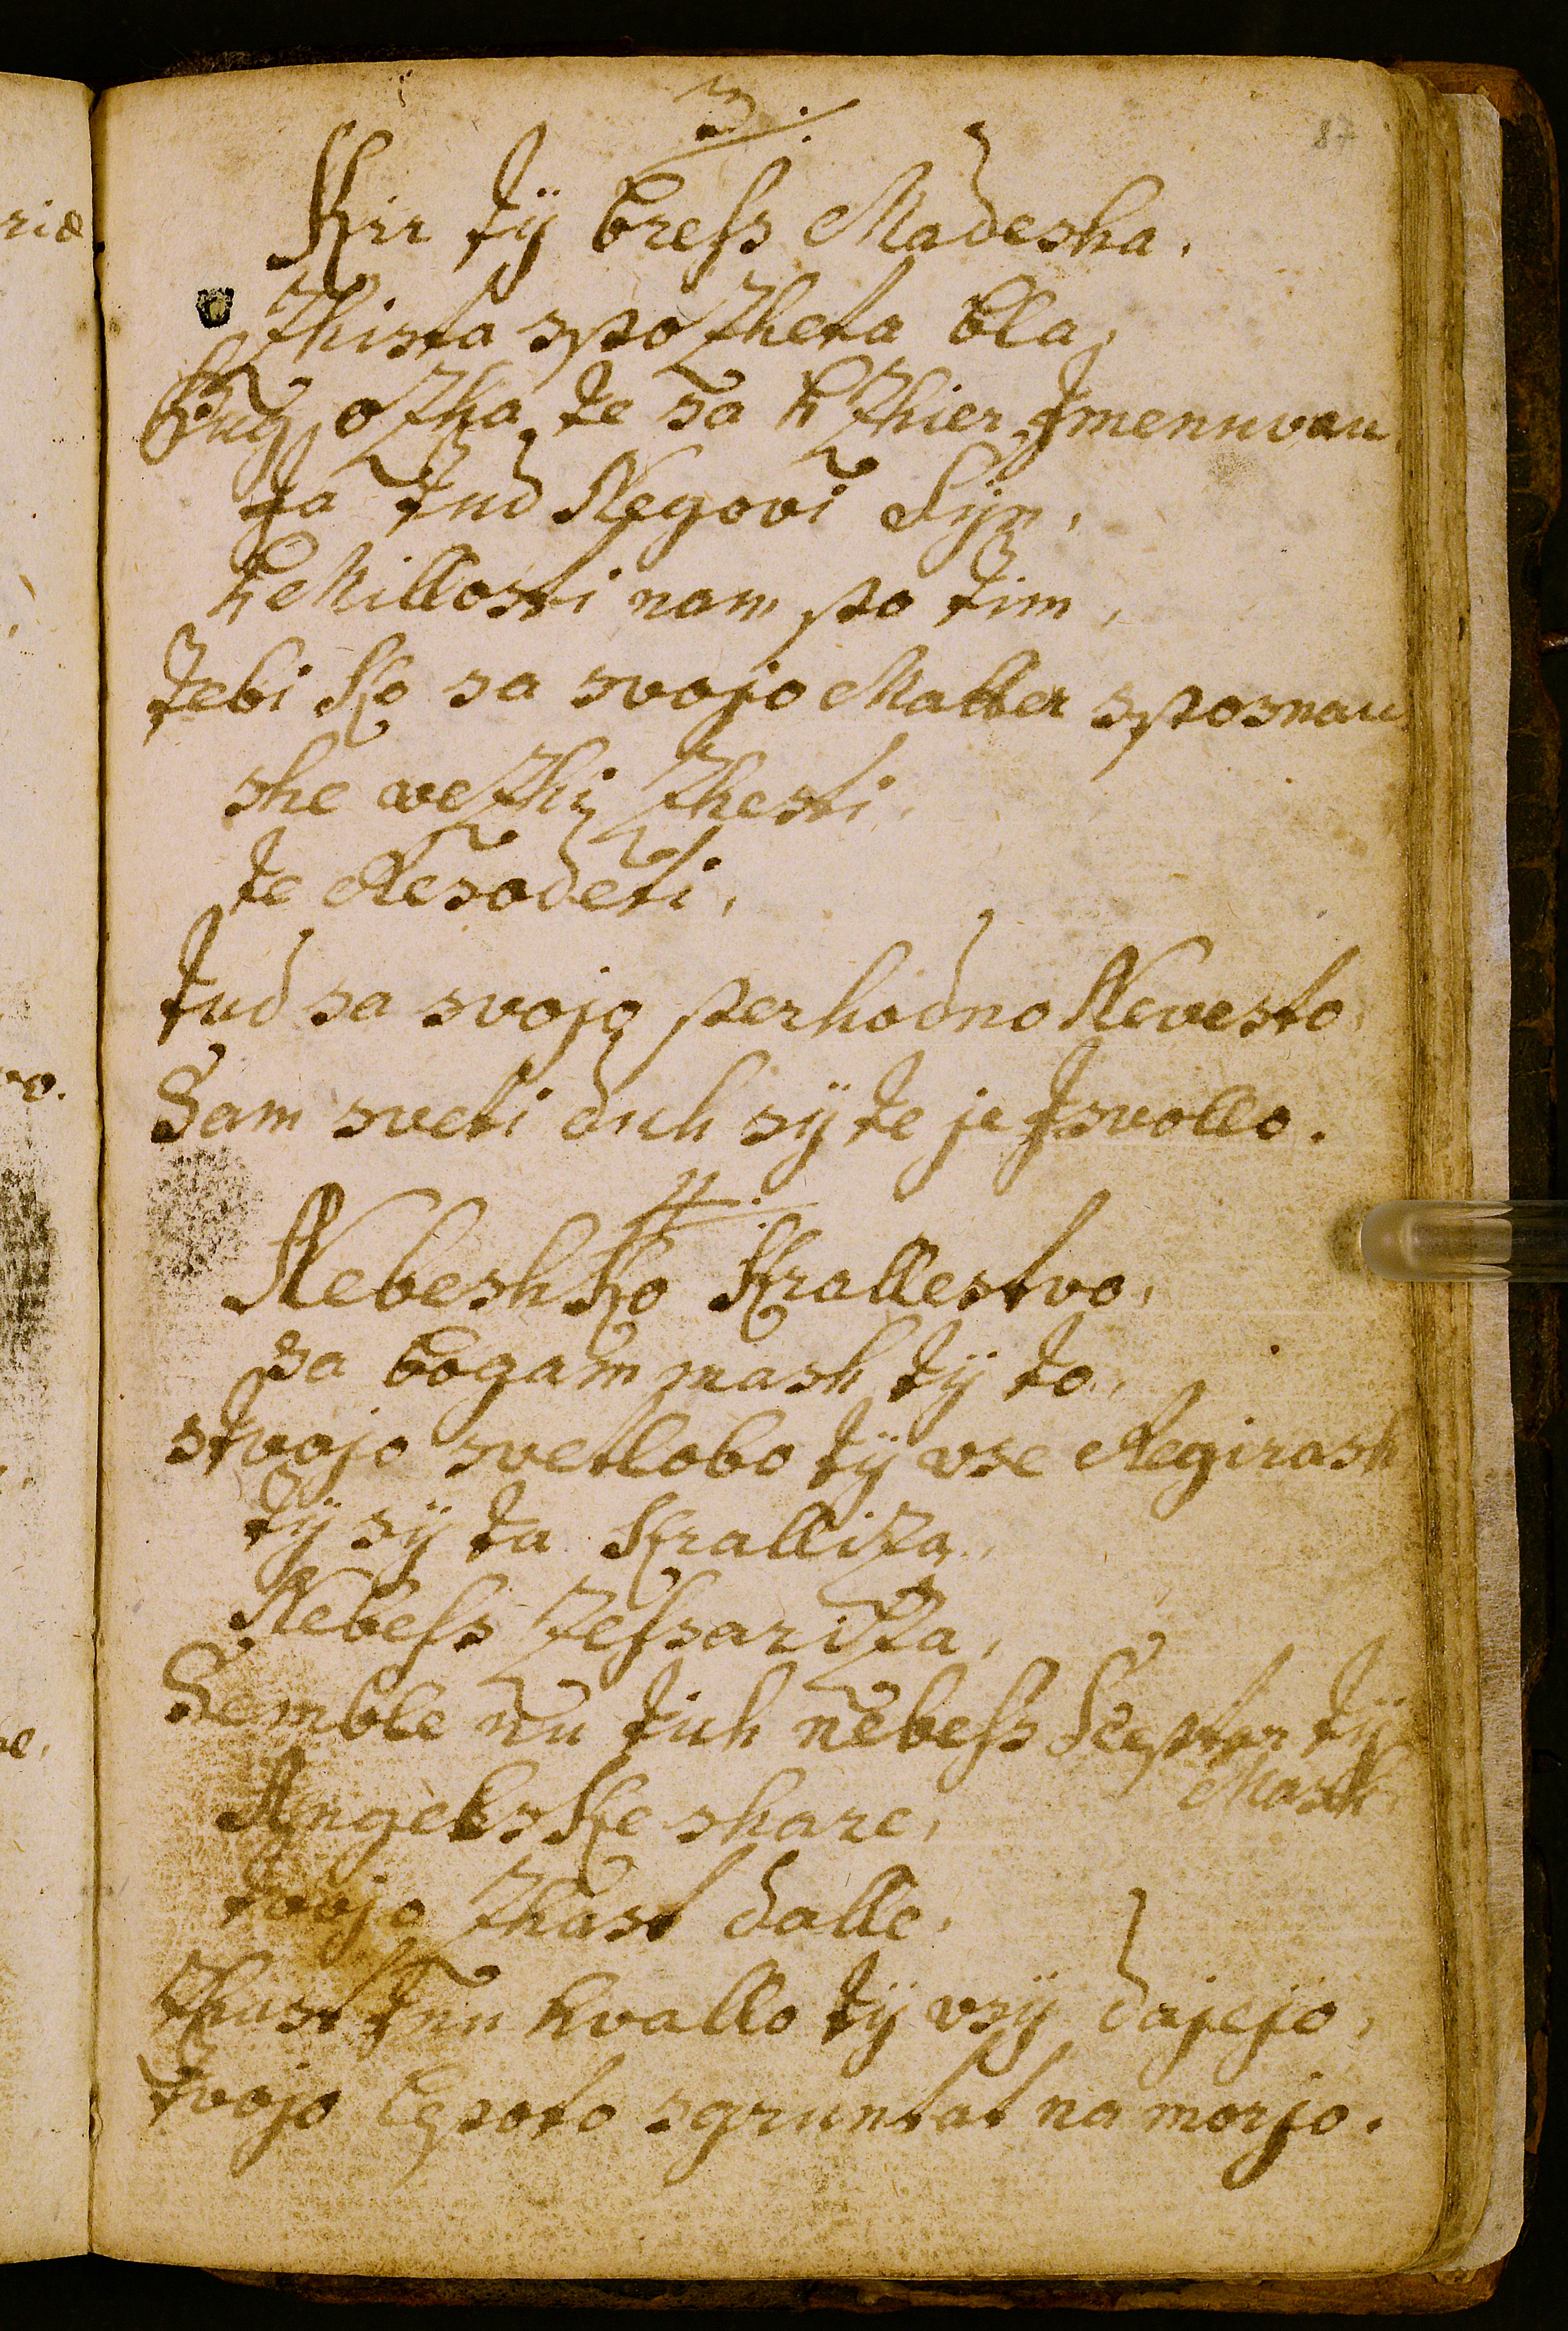 87
3.
Kir tÿ bress Madesha,
Zhista spozheta bla,
Bug ozha te sa hzhier Jmenuvau,
ta tud Negovi Sÿn,
h Millosti nam po tim,
tebi ko sa svojo Matter sposnau
she vezhi zhesti,
te Resodeti,
tud sa svojo perhodno Nevesto,
Sam sveti duh sÿ te je Jsvollo.
4.
Nebeshko krallestvo,
sa bogam mash tÿ to,
stvojo svetlobo tÿ vse Regirash
tÿ sÿ ta kralliza,
Nebess zessariza,
Semble nu tuh nebess Scepter tÿ
Mash,
Angelske share,
tvojo zhast dalle,
zhast Jnu hvallo tÿ vsÿ dajejo,
tvojo lepoto sgruntat na morjo.